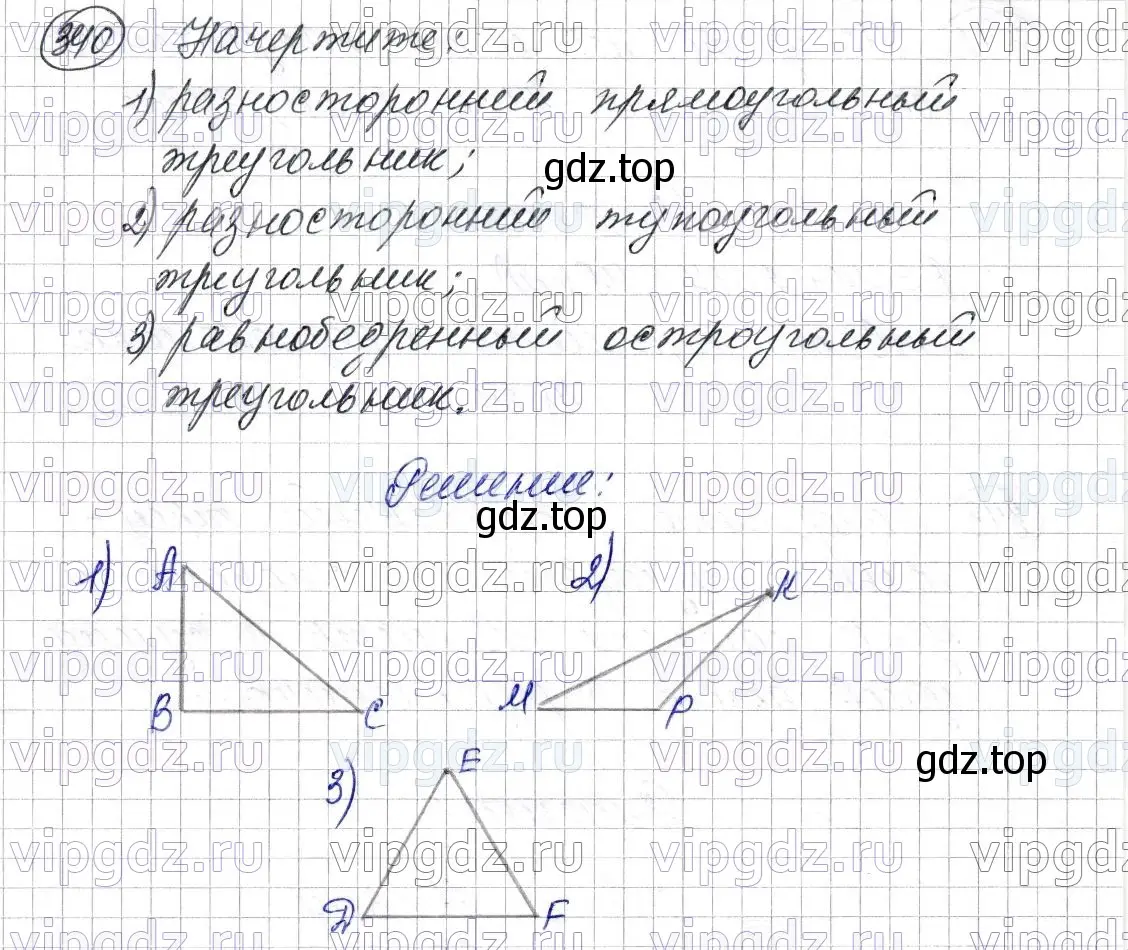 340 Начертите:
1) разносторонний прямоугольный
треугольник;
gdz.top
2) разносторонний тупоугольный
треугольник;
3) равнобедренный остроугольный
треугольник.
Решение:
gdz.top
1) A B C
2) M K P
gdz.top
3) E D F
vipgdz.ru